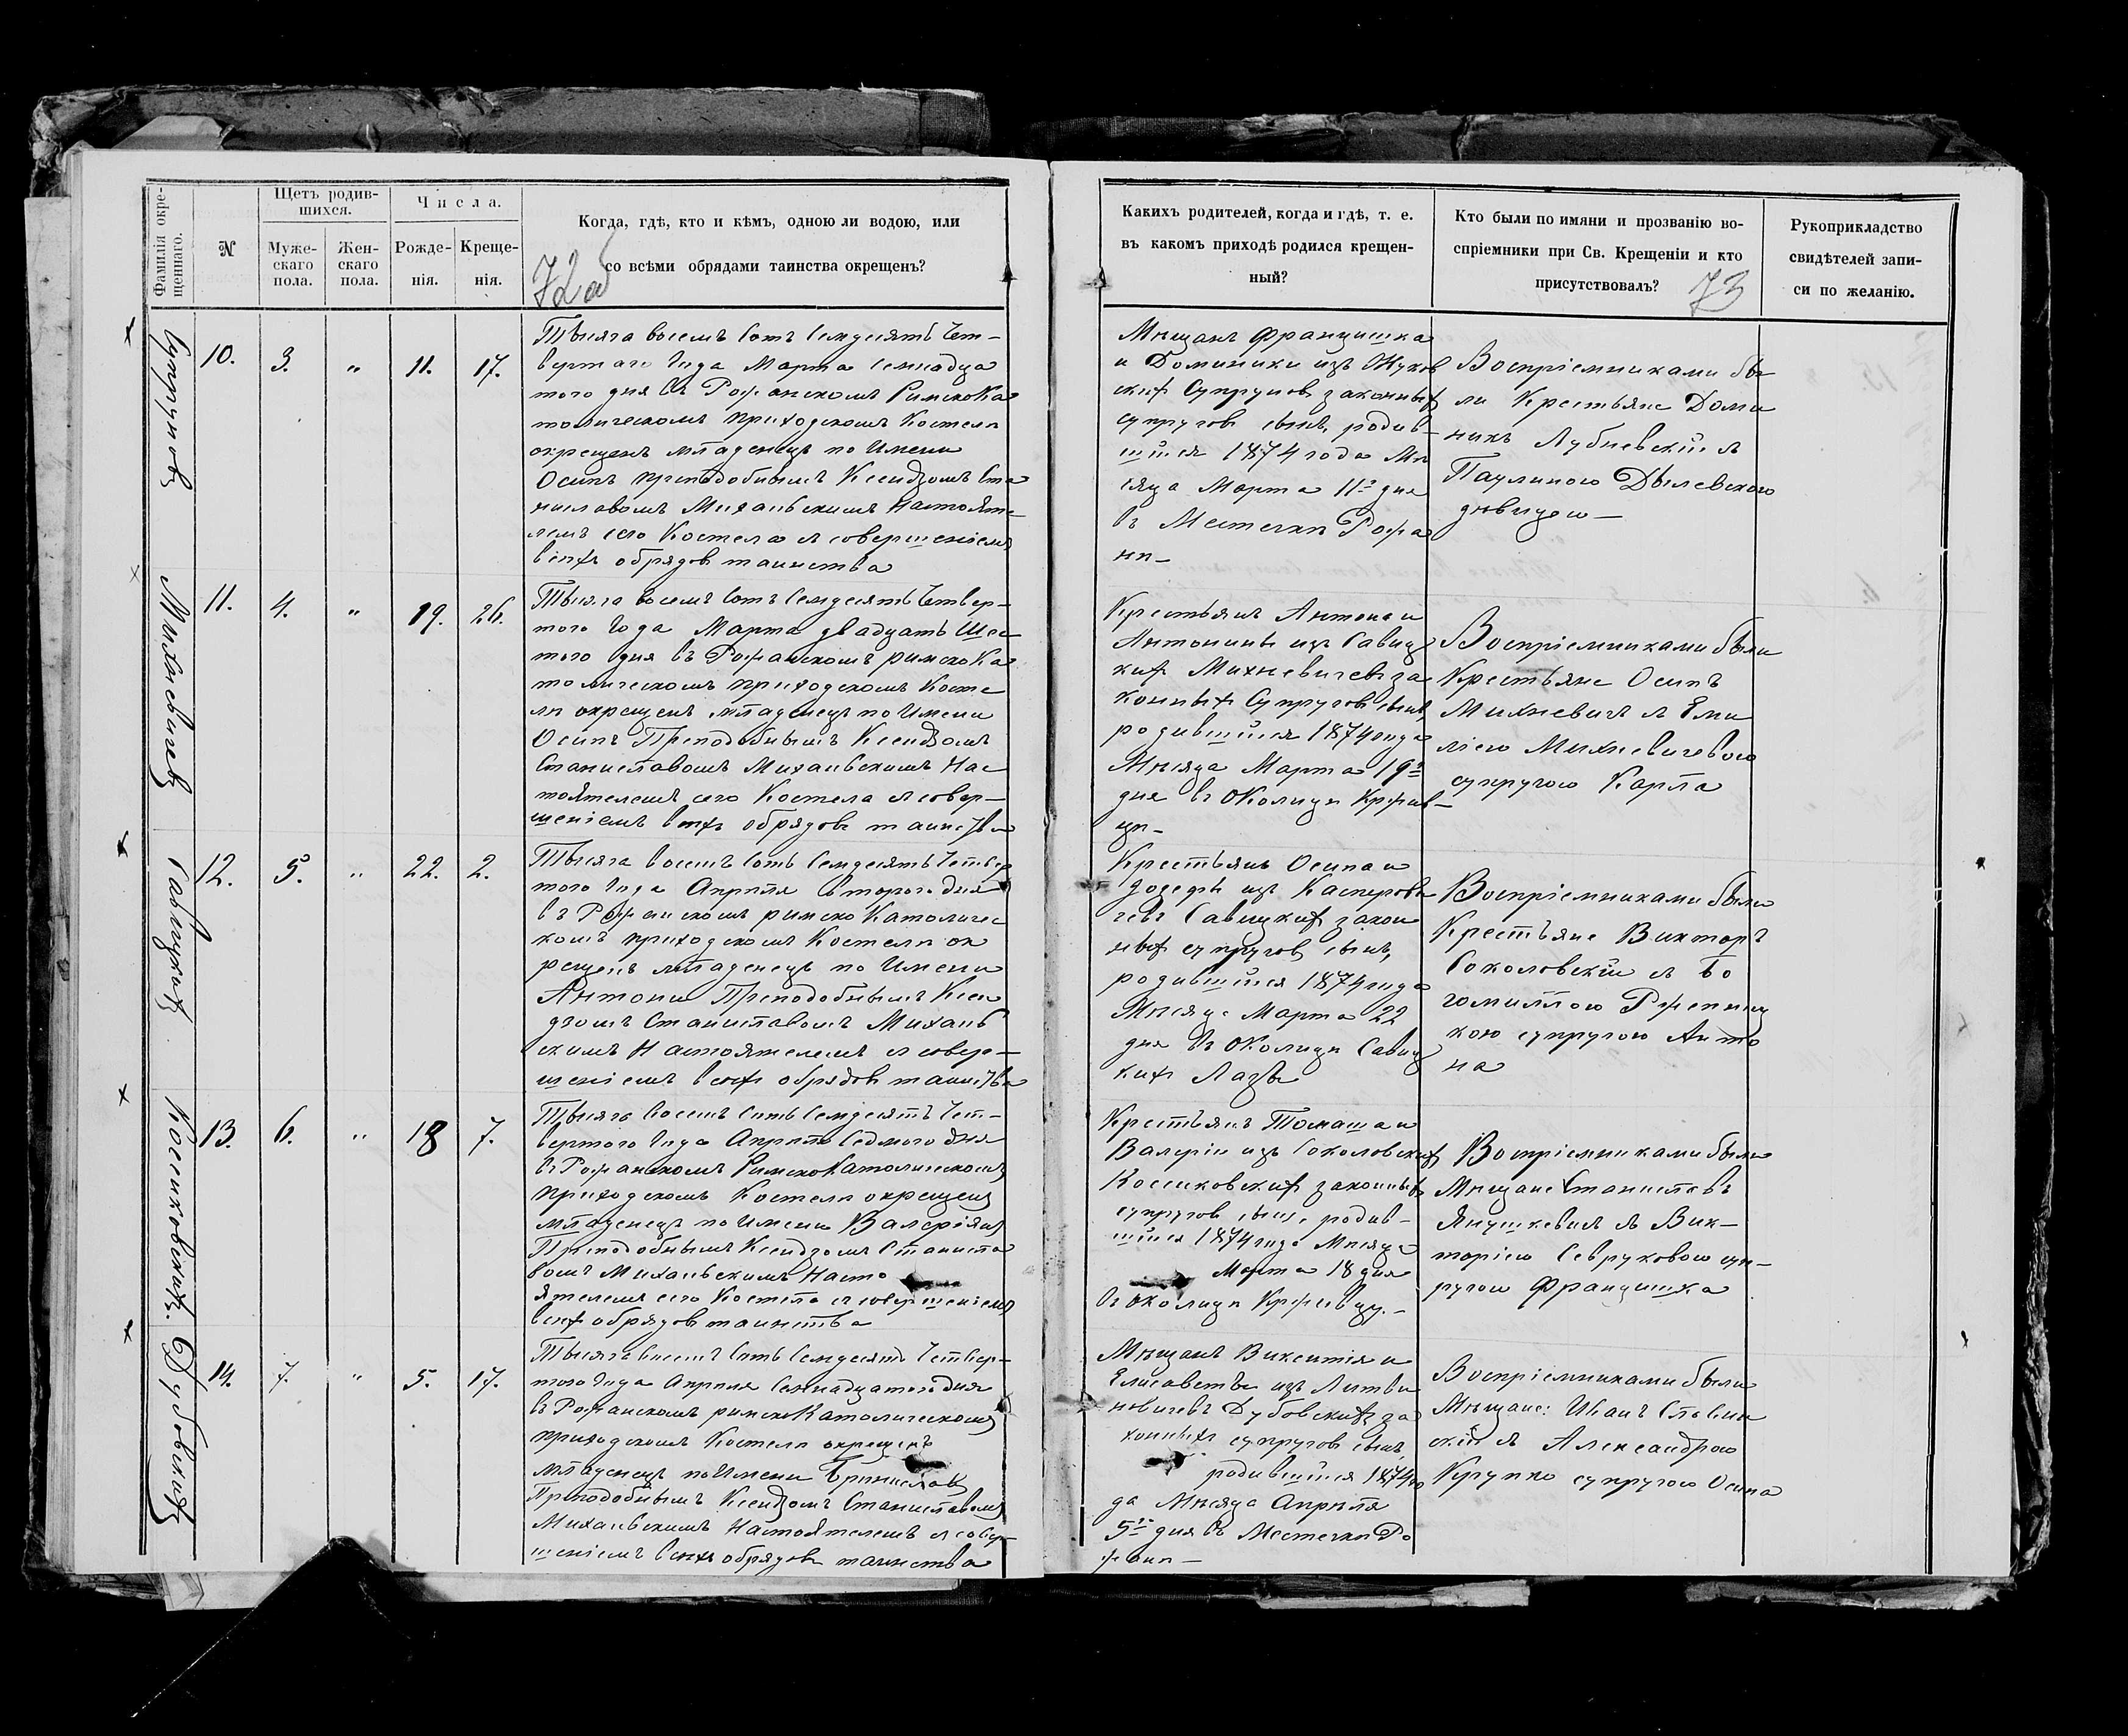 Фамилія окре-
щеннаго.
№
Щетъ родив-
шихся.
Муже-
скаго
пола.
Жен-
скаго
пола.
Числа.
Рожде-
нія.
Креще-
нія.
Когда, гдѣ, кто и кѣмъ, одною ли водою, или
со всѣми обрядами таинства окрещенъ?
72а
Супруновъ
10.
3.
"
11.
17.
Тысяча восемь сотъ семдесятъ чет-
вертаго года Марта семнадца
того дня въ Рожанскомъ РимскоКа
толическомъ приходскомъ Костелѣ
окрещенъ младенецъ по имени
Осипъ преподобнымъ Ксендзомъ Ста
ниславомъ Михаевскимъ Настояте-
лемъ сего Костела съ совершеніемъ
всѣхъ обрядовъ таинства
Михневичевъ
11.
4.
"
19.
26.
Тысяча восемь сотъ семдесятъ Четвер-
того года Марта двадцать Шес
того дня въ Рожанскомъ римскоКа
толическомъ приходскомъ Косте
лѣ окрещенъ младенецъ по имени
Осипъ Преподобнымъ Ксендзомъ
Станиславомъ Михаевскимъ Нас
тоятелемъ сего Костела съ совер-
шеніемъ всѣхъ обрядовъ таинства
Савицкихъ
12.
5.
"
22.
2.
Тысяча восемь сотъ семдесятъ Четвер
того года Апрѣля второго дня
въ Рожанскомъ римско Католичес
комъ приходскомъ Костелѣ ок
рещенъ младенецъ по имени
Антони Преподобнымъ Ксен
дзомъ Станиславомъ Михаев
скимъ Настоятелемъ съ совер-
шеніемъ всѣхъ обрядовъ таинства
Косиковскихъ.
13.
6.
"
18
7.
Тысяча восемь сотъ семдесятъ Чет-
вертого года Апрѣля Седмого дня
въ Рожанскомъ РимскоКатолическомъ
приходскомъ Костелѣ окрещенъ
младенецъ по имени Валеріянъ
Преподобнымъ Ксендзомъ Станисла
вомъ Михаевскимъ Насто
ятелемъ сего Костела съ совершеніемъ
всѣхъ обрядовъ таинства
Дубовскихъ
14.
7.
"
5.
17.
Тысяча восемь сотъ семдесятъ Четвер-
того года Апрѣля Семнадцатого дня
въ Рожанскомъ римскоКатолическомъ
приходскомъ Костелѣ окрещенъ
младенецъ по имени Брониславъ
Преподобнымъ Ксендзомъ Станиславомъ
Михаевскимъ Настоятелемъ съ совер-
шеніемъ всѣхъ обрядовъ таинства
Какихъ родителей, когда и гдѣ, т. е.
въ какомъ приходѣ родился крещен-
ный?
Кто были по имяни и прозванію во-
спріемники при Св. Крещеніи и кто
присутствовалъ?
73
Рукоприкладство
свидѣтелей запи-
си по желанію.
Мѣщанъ Францишка
и Доминики изъ Жуков
скихъ Супруновъ законныхъ
супруговъ сынъ, родив-
шійся 1874 года Мѣ
сяца Марта 11го дня
въ Местечкѣ Рожа
нѣ-
Воспріемниками бы
ли Крестьяне Доми
никъ Лубневскій съ
Паулиною Дылевскою
дѣвицею-
Крестьянъ Антона и
Антонины изъ Савиц
кихъ Михневичевъ за
конныхъ Супруговъ сынъ,
родившійся 1874 года
Мѣсяца Марта 19го
дня въ Околицѣ
цѣ-
Воспріемниками были
Крестьяне Осипъ
Михневичъ съ Еми
ліею Михневичевою
супругою Карла
Крестьянъ Осипа и
Іозефы изъ Касперови
чевъ Савицкихъ закон
ныхъ супруговъ сынъ,
родившійся 1874 года
Мѣсяца Марта 22
дня въ Околицѣ Савиц
кихъ Лазы
Воспріемниками были
Крестьяне Викторъ
Соколовскій съ Бо
гомиллою
кою супругою Анто
на
Крестьянъ Томаша и
Валеріи изъ Соколовскихъ
Косиковскихъ законныхъ
супруговъ сынъ, родив-
шійся 1874 года Мѣсяца
Марта 18 дня
въ околицѣ
Воспріемниками были
Мѣщане Станиславъ
Янушкевичъ съ Вик-
торіею Севруковою суп-
ругою Францишка
Мѣщанъ Викентія и
Елисаветы изъ Литви
новичевъ Дубовскихъ за
конныхъ супруговъ сынъ,
родившійся 1874 го
да Мѣсяца Апрѣля
5го дня въ Местечкѣ Ро
жанѣ-
Воспріемниками были
Мѣщане: Иванъ Славин
скій съ Александрою
Крупко супругою Осипа